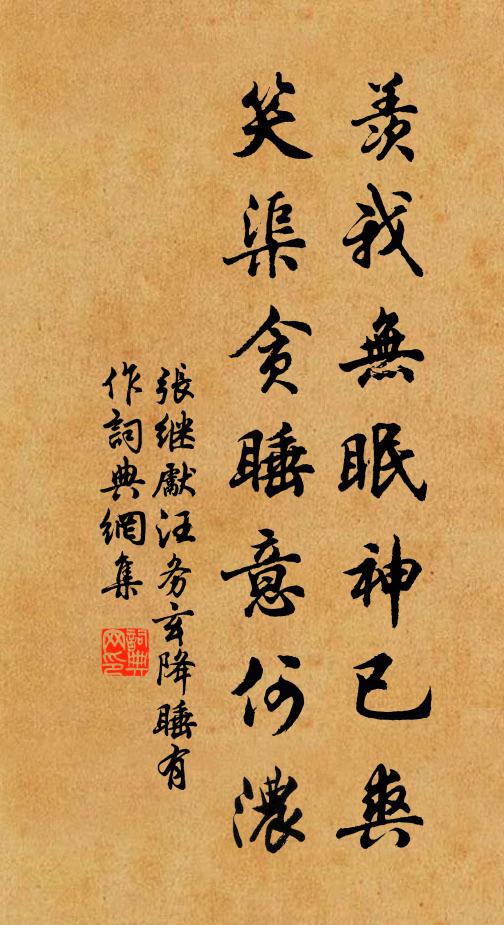 羨我無眠神已爽
笑渠貪睡意何濃
張继獻汪务玄降睡有
作詞典網集
詞典网印